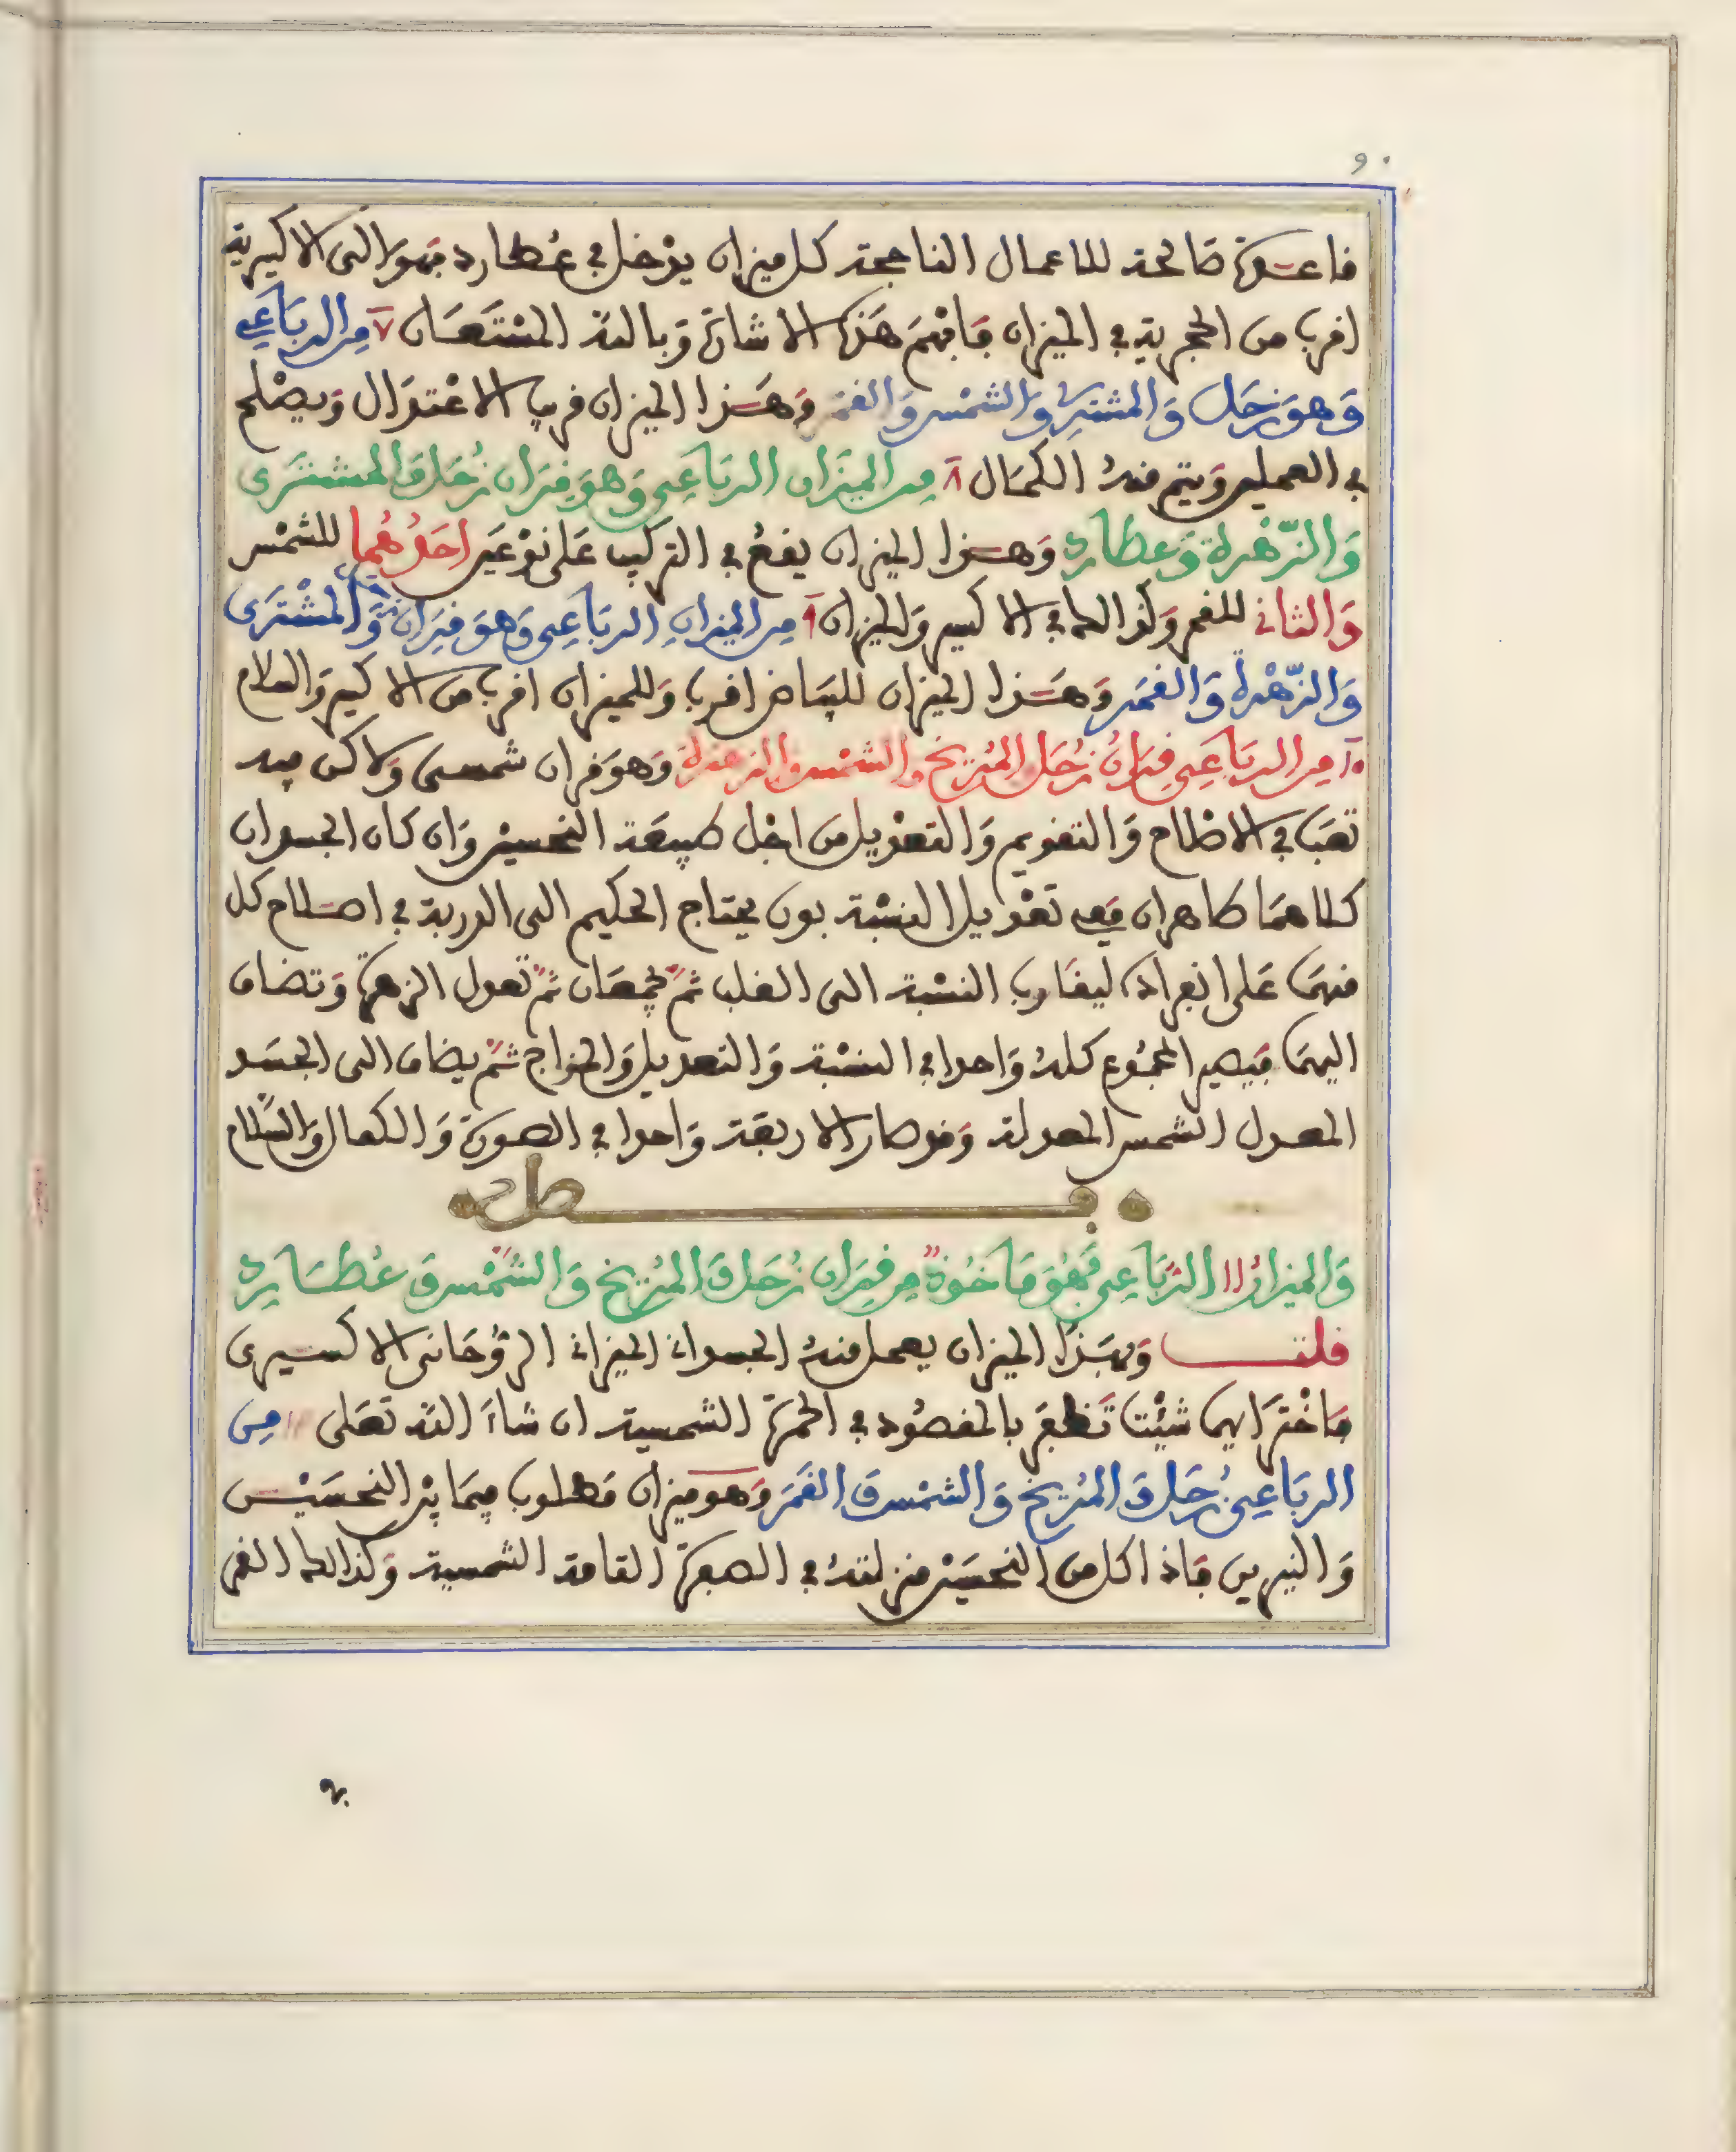 ٩٠
قاعدة صالحة للاعمال الناجحة كل ميزان يدخل في عُطارد فهو الى الاكسيرية
اقرب من الحجرية في الميزان فافهم هَذه الاشارة وَبالله المُسْتَعَان ٧ مِن الربَاعِي
وَهوَ زحَل وَالمشترِي وَالشمْس وَالقمَر وَهَذا الميزان قريب الاعْتدَال وَيصْلح
في العملين وَيتم منهُ الكمَال ٨ مِن الميزَان الربَاعِي وَهوَ قِرَان زُحَل وَالمشترَى
وَالزّهرة وَعطارد وَهذا الميزان يقعُ في التركيب عَلى نوْعَين احَدُهُما للشمْس
وَالثاني للقمر وَكذالك في الاكسير وَالميزان ٩ مِن الميزانِ الربَاعِي وَهوَ قِرَان زحل وَالمشْترَى
وَالزّهْرة وَالقمَر وَهَذا الميزان للبيَاض اقرب وَللميزان اقرب من الاكسير وَالسلام
١٠ مِن الربَاعِي قِرَانُ زُحَل المُرّيخ وَالشمْس وَالزهرَة وَهوَ قران شمسى وَلاكن فيه
تعَب في الاصْلاح وَالتقويم وَالتعْديل من اجْل طبيعَة النحسين وَان كان الجسدان
كلاهمَا طاهران ففي تعْديل النسْبة بون يحتاج الحكيم الى الدربة في اصلاح كل
منهمَا عَلى انفراده ليقارب النسْبة الى القلب ثمّ يجمعَان ثمّ تعدل الزهرَة وَتضاف
اليهمَا فيَصير المجْمُوع كلهُ وَاحدا في النسْبة وَالتعديل وَالمزاج ثمّ يضاف الى الجسَد
المعدل الشمس المعدلة وَقد صار الاربعَة وَاحدا في الصورَة وَالكمال وَالسّلام
فصل
وَالميزانُ ١١ الربَاعِي فَهُوَ مَاخُوذ مِن قِرَان زُحَل وَالمُرّيخ وَالشمْس وَعُطارِد
قلت وَبهَذا الميزان يعمل منهُ الجسداني الميزاني الرّوُحَانى الاكسيرى
فاخْتر ايهما شئْت تَظفَر بالمقصُود في الحمرَة الشمسية ان شاءَ الله تعَلى ١٢ مِن
الربَاعِي زُحَل وَالمُرّيخ وَالشمْس وَالقَمَر وَهو ميزان مَطلوب فيمَا بيْن النحسَيْن
وَالنيرين فاذا كل من النحسَين منزلتهُ في الصفرَة التامة الشمسية وَكذالك القمر